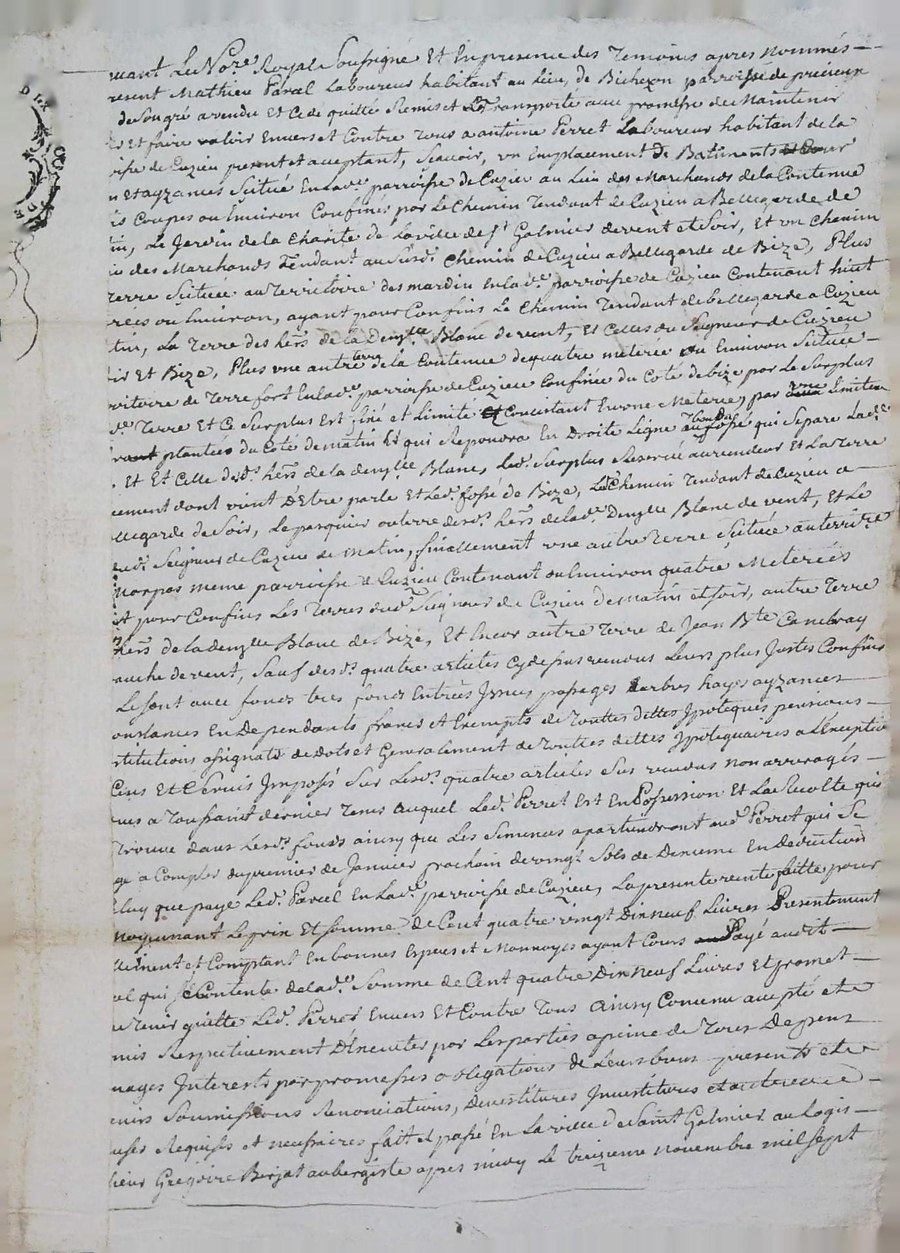 uant Le No.re Royal Soussigné Et En presence des Temoins apres Nommés
resent Mathieu Parcel Laboureur habitant au Lieu de Bichexon parroisse de precieux
de Sougré a vendu Et Cedé quitté Remis et Transporté avec promesse de Maintenir
Et faire valoir Envers et Contre Tous a antoine Perret Laboureur habitant de la
oisse de Cuzieu present et acceptant, Scavoir, un Emplacement de Batiments
n et ayzances Situé En lad.e parroisse de Cuzieu au Lieu des Marchands de la Contenue
is Coupes ou Environ Confinés par Le Chemin Tendant de Cuzieu a Bellegarde de
in, Le Jardin de la Charité de La ville de S.t Galmier de vent et Soir, Et un Chemin
des Marchands Tendant au Susd. Chemin de Cuzieu a Bellegarde de Bize, Plus
Terre Située au Territoire des mardin En lad.e parroisse de Cuzieu Contenant huit
rées ou Environ, ayant pour Confins Le Chemin Tendant de bellegarde a Cuzieu
tin, La Terre des hers de la Demlle Blanc de vent, Et Celles du Seigneur de Cuzieu
ir Et Bize, Plus une autre terre de la Contenue de quatre meterée ou Environ Située
rritoire de Terre fort En lad.e parroisse de Cuzieu Confinée du Coté de bize par Le Surplus
d.e Terre Et Ce Surplus Est fixé et Limité Concistant En une Meterée, par une Limitte
plantées du Coté de matin Et qui Repondra En Droite Ligne au fossé qui Separe Lad.e
Et Et Celle desd. hers de la demlle Blanc, Led. Surplus Reservé au vendeur Et La Terre
ement dont vient D'Etre parlé Et Led. fossé de Bize, Led. Chemin Tendant de Cuzieu a
llegarde de Soir, Le pasquier ou terre desd. hers de lad.e Demlle Blanc de vent, Et Le
d. Seigneur de Cuzieu de Matin, finallement une autre Terre Située au terri
pas meme parroisse de Cuzieu Contenant ou Environ quatre Meterées
t pour Confins Les Terres dud. Seigneur de Cuzieu de matin et Soir, autre Terre
hers de la demlle Blanc de Bize, Et Encor autre Terre de Jean Bte
de vent, Sauf desd. quatre articles Cy dessus vendus Leurs plus Justes Confins
Le Sont avec fonds tres fonds Entrées Issues passages arbres hayes ayzances
onstances En Dependants francs et Exempts de Touttes dettes Ypoteques pensions
stitutions assignats de dots et Generalement de Touttes dettes Ypotequaires a L'Exception
Cens Et Servis Imposés Sur Lesd. quatre articles Sus vendus non arreragés
ues a Toussaint dernier Tems auquel Led. Perret Est En Possession Et La Recolte qui
Trouve dans Lesd. fonds ainsy que Les Semences apartiendront aud. Perret qui Se
ge a Compter du premier de Janvier prochain de vingt Sols de Dixieme En deduction
luy que paye Led. Parcel En Lad.e parroisse de Cuzieu, La presente vente faitte pour
Moyennant Le prix Et Somme de Cent quatre vingt Dix neuf Livres Presentement
llement et Comptant En bonnes Especes et Monnoyes ayant Cours Payé audit
el qui S'e Contente de lad.e Somme de Cent quatre Dix neuf Livres Et promet
Tenir quitte Led. Perret Envers Et Contre Tous Ainsy Convenu accepté et
mis Respectivement D'Executer par Les parties a peine de Tous Depens
mages Interests par promesses obligations de Leurs biens presents et
enir Soumissions Renonciations, Devestitures Investitures et
uses Requises et necessaires fait et passé En La ville de Saint Galmier au Logis
ieur Gregoire Berjat aubergiste apres midy Le treizieme novembre mil sept